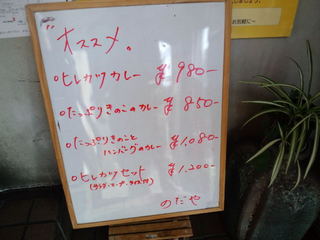 オススメ。
○ヒレカツカレー ¥980-
○たっぷりきのこのカレー ¥850-
○たっぷりきのこと
ハンバーグのカレー ¥1,080-
○ヒレカツセット ¥1,200-
(サラダ・スープ・ライス付)
のだや
お気軽に〜